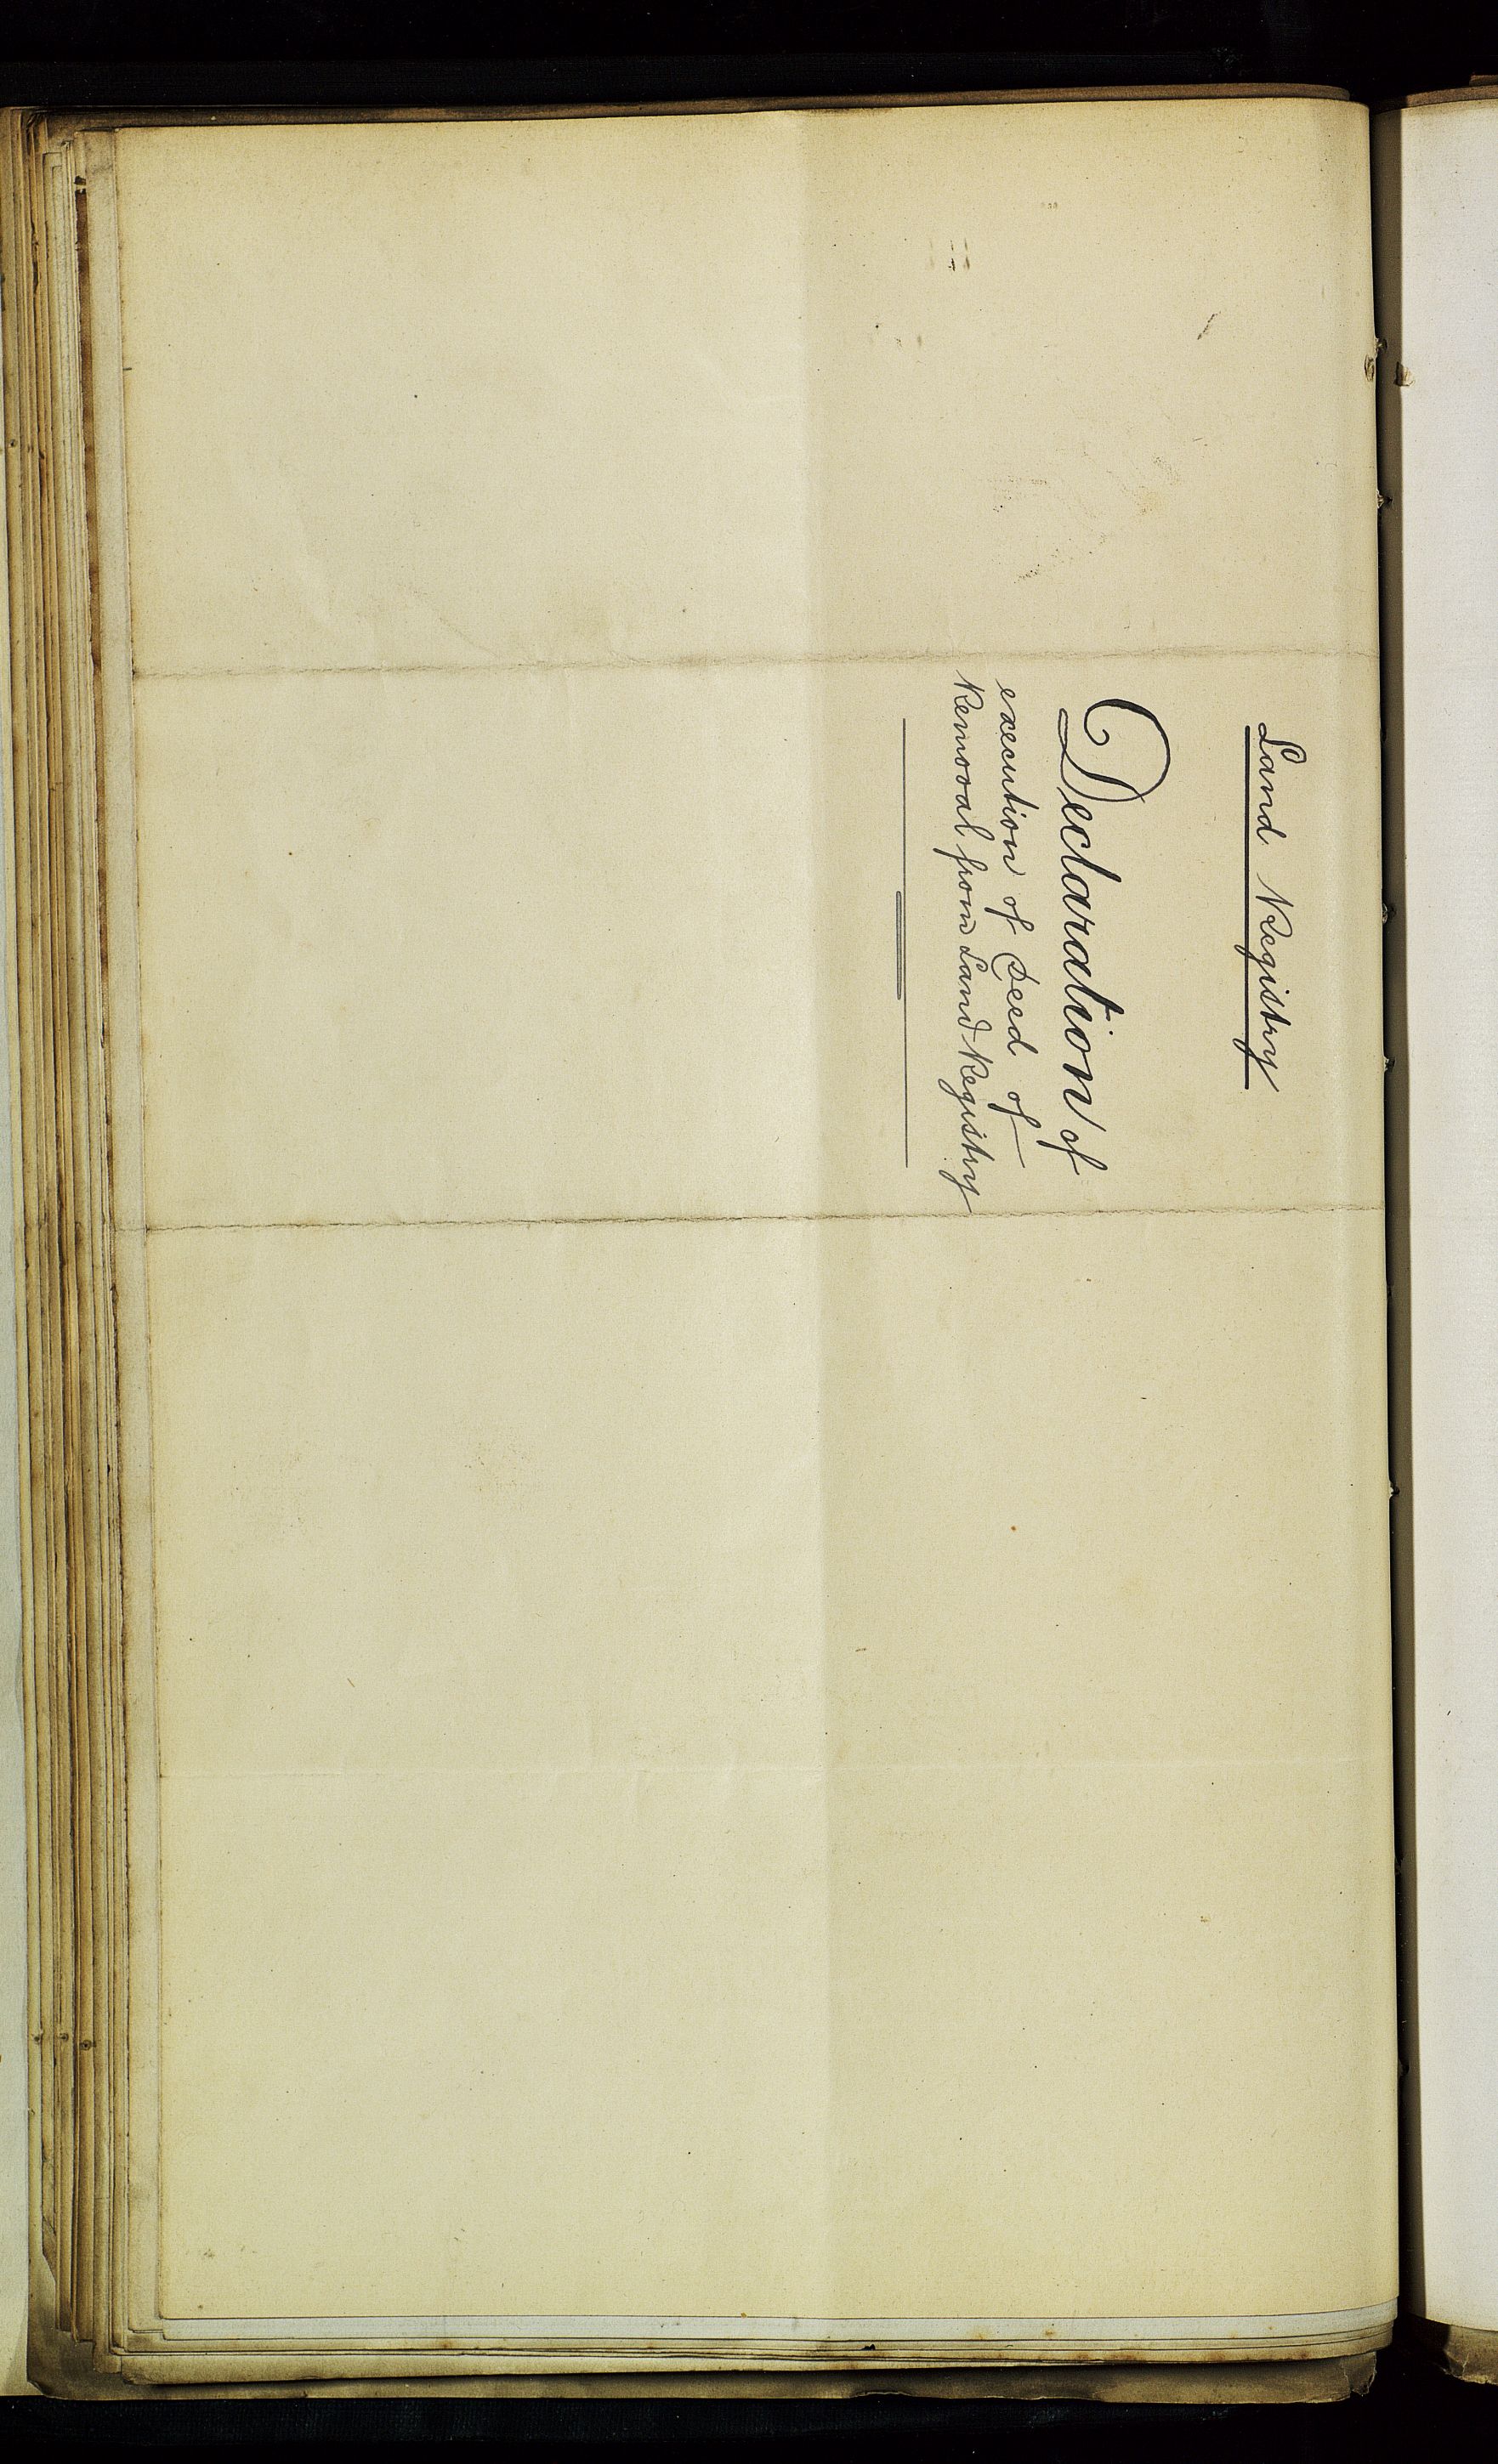 Land Registry
Declaration of
execution of Deed of
Removal from Land Registry